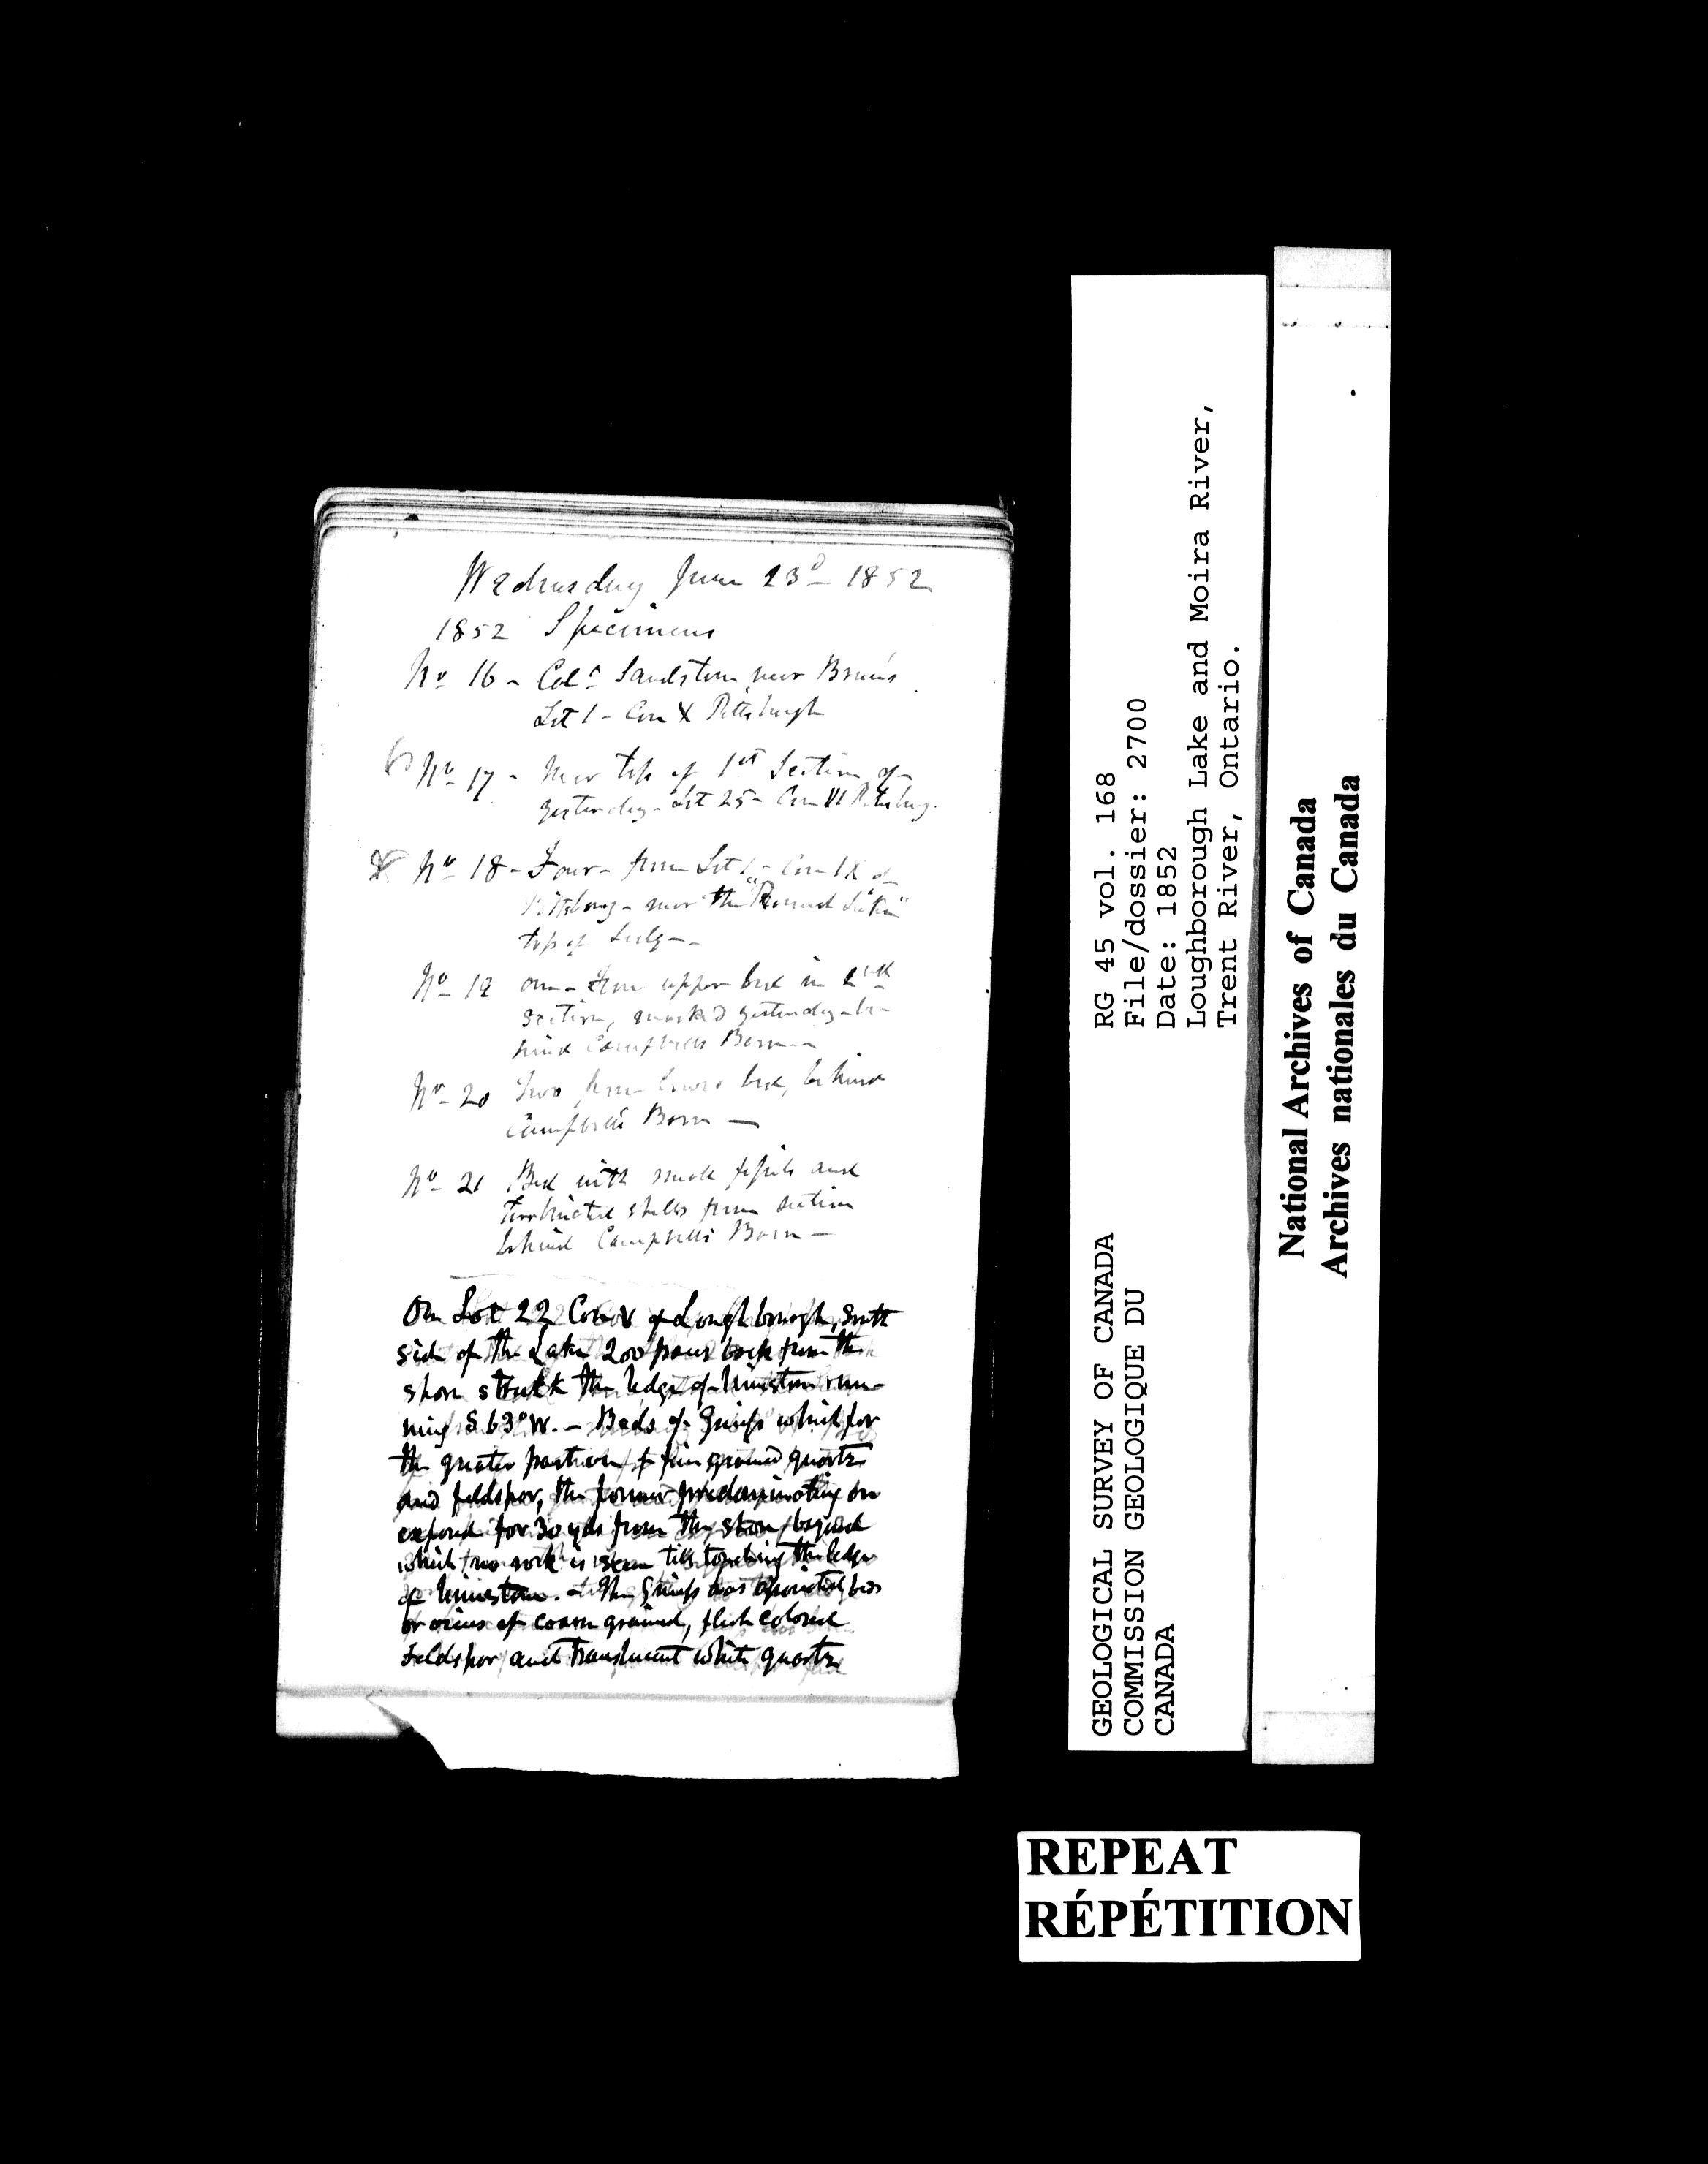 Wednesday June 23d 1852
1852 Specimens
No 16 - Calcs Sandstone near
Lot 1 - Con X Pittsburgh
No 17 - Near top of 1st Section of
yesterday - Lot 25 - Con VI Pittsburg.
No 18 - Four - from Lot 1 - Con IX of
Pittsburg - near the "Round
top of ledge -
No 19 one - from upper bed in 2nd
section, marked yesterday - be-
hind Campbells Barn -
No 20 Two from lower bed, behind
Campbells Barn —
No 21 Bed with small fossils and
turbinated shells from section
behind Campbells Barn —
On Lot 22 Con V of Loughborough, South
side of the Lake 200 paces back from the
shore struck the ledge of limestone run-
ning S 63° W. - Beds of Gneiss which for
the greater portion of fine grained quartz
and feldspar, the former predominating are
exposed for 30 yds from the shore, beyond
which no rock is seen till touching the ledge
of limestone. - The Gneiss has beds
or veins of coarse grained, flesh colored
Feldspar and translucent white quartz
RG 45 vol. 168
File/dossier: 2700
Date: 1852
Loughborough Lake and Moira River,
Trent River, Ontario.
GEOLOGICAL SURVEY OF CANADA
COMMISSION GEOLOGIQUE DU
CANADA
National Archives of Canada
Archives nationales du Canada
REPEAT
RÉPÉTITION